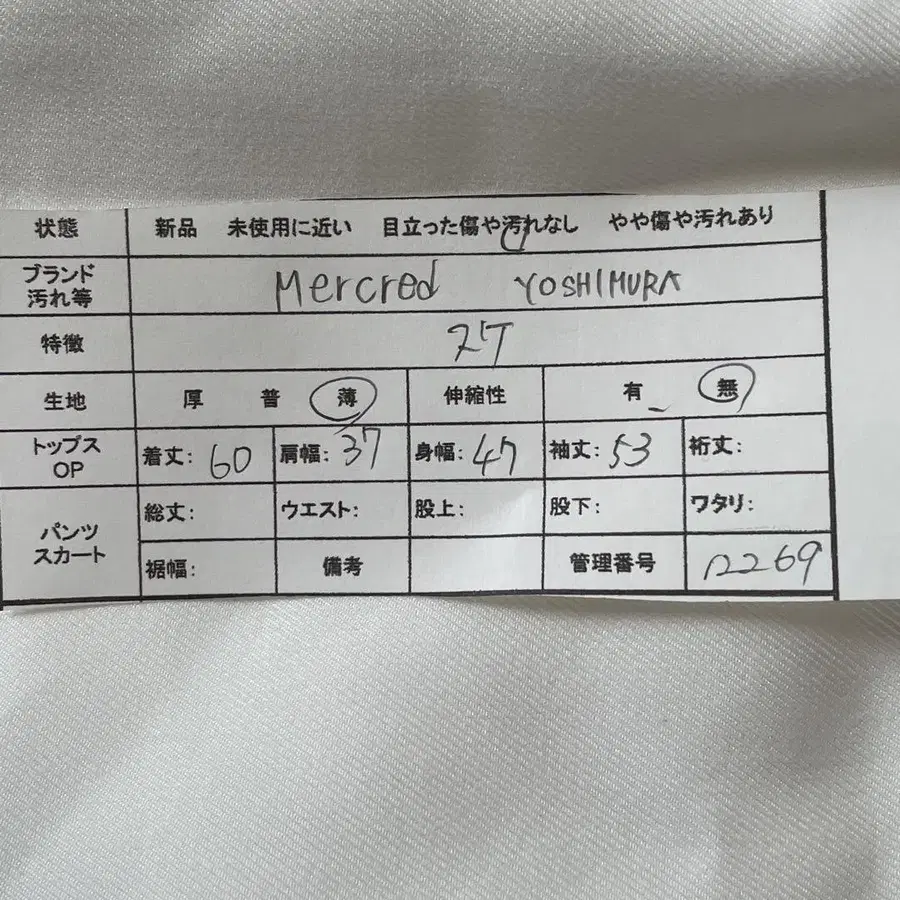 状態 新品 未使用に近い 目立った傷や汚れなし やや傷や汚れあり
ブランド
汚れ等 Mercred YOSHIMURA
特徴 2T
生地 厚 普 薄 伸縮性 有 無
トップス
OP 着丈: 60 肩幅: 37 身幅: 47 袖丈: 53 裄丈:
パンツ
スカート 総丈: ウエスト: 股上: 股下: ワタリ:
裾幅: 備考 管理番号 n2269